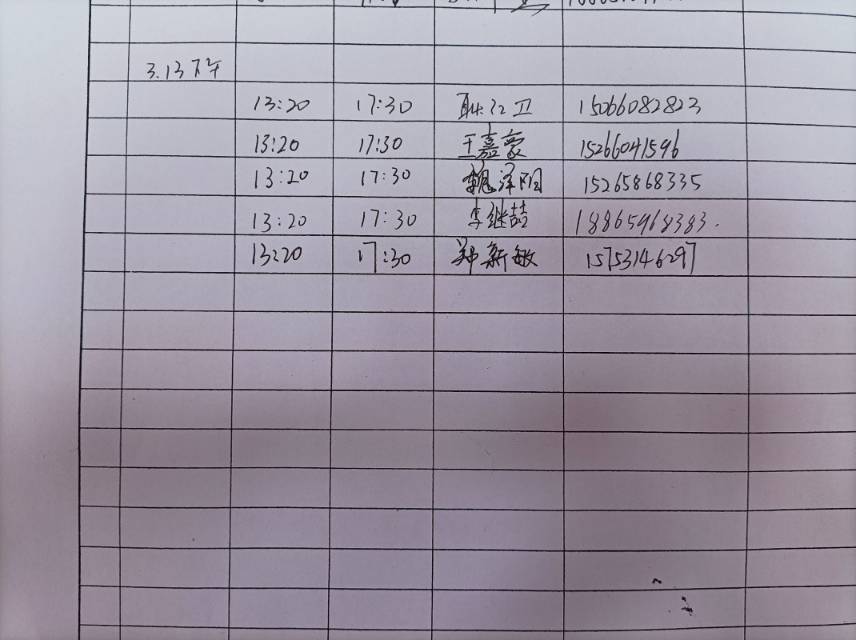 3.13下午
13:20 17:30 耿江卫 15066082823
13:20 17:30 王嘉豪 15266041596
13:20 17:30 魏泽阳 15265868335
13:20 17:30 李继喆 18865968383.
13:20 17:30 郑新敏 15753146297